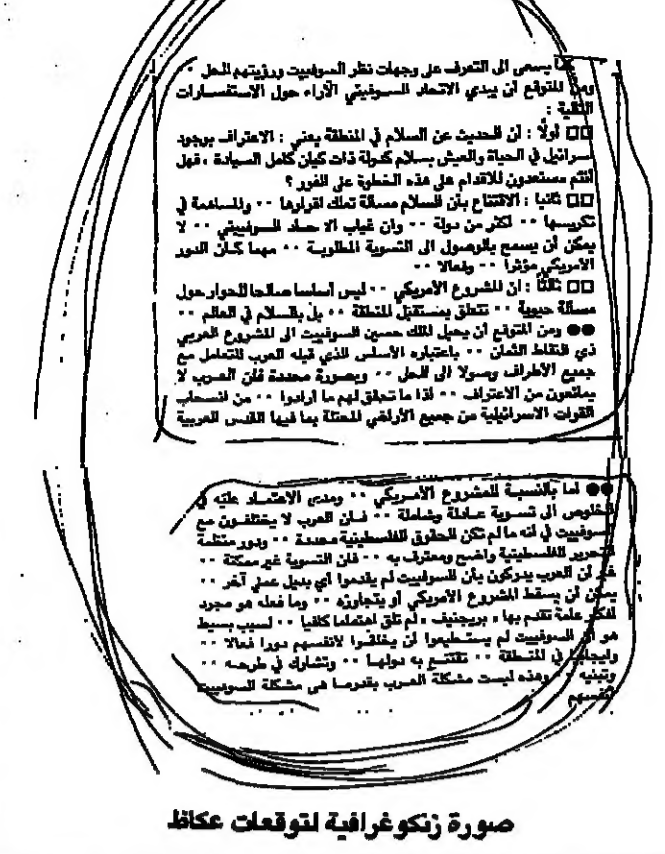 كما يسعى الى التعرف على وجهات نظر السوفييت ورؤيتهم للحل ٠
ومن المتوقع أن يبدي الاتحاد السوفيتي الآراء حول الاستفسارات
التالية :
□□ أولًا : ان الحديث عن السلام في المنطقة يعني : الاعتراف بوجود
اسرائيل في الحياة والعيش بسلام كدولة ذات كيان كامل السيادة ، فهل
أنتم مستعدون للاقدام على هذه الخطوة على الفور ؟
□□ ثانيا : الاقتناع بأن السلام مسألة تملك اقرارها ٠٠ والمساهمة في
تكريسها ٠٠ اكثر من دولة ٠٠ وان غياب الاتحاد السوفييتي ٠٠ لا
يمكن أن يسمح بالوصول الى التسوية المطلوبة ٠٠ مهما كان الدور
الأمريكي مؤثرا ٠٠ وفعالا ٠٠
□□ ثالثًا : ان المشروع الأمريكي ٠٠ ليس أساسا صالحا للحوار حول
مسألة حيوية ٠٠ تتعلق بمستقبل المنطقة ٠٠ بل بالسلام في العالم ٠٠
●● ومن المتوقع أن يحيل الملك حسين السوفييت الى المشروع العربي
ذي النقاط الثمان ٠٠ باعتباره الأساس الذي قبله العرب للتعامل مع
جميع الأطراف وصولا الى الحل ٠٠ وبصورة محددة فان العرب لا
يمانعون من الاعتراف ٠٠ اذا ما تحقق لهم ما ارادوا ٠٠ من انسحاب
القوات الاسرائيلية من جميع الأراضي المحتلة بما فيها القدس العربية
●● اما بالنسبة للمشروع الأمريكي ٠٠ ومدى الاعتماد عليه في
الخلوص الى تسوية عادلة وشاملة ٠٠ فان العرب لا يختلفون مع
السوفييت في انه ما لم تكن الحقوق الفلسطينية محددة ٠٠ ودور منظمة
التحرير الفلسطينية واضح ومعترف به ٠٠ فان التسوية غير ممكنة ٠٠
غير أن العرب يدركون بأن السوفييت لم يقدموا أي بديل عملي آخر ٠٠
يمكن أن يسقط المشروع الأمريكي أو يتجاوزه ٠٠ وما فعله هو مجرد
افكار عامة تقدم بها ، بريجنيف ، لم تلق اهتماما كافيا ٠٠ لسبب بسيط
هو أن السوفييت لم يستطيعوا أن يخلقوا لانفسهم دورا فعالا ٠٠
وايجابيا في المنطقة ٠٠ تقتنع به دولها ٠٠ وتشارك في طرحه ٠٠
وتبنيه ٠٠ وهذه ليست مشكلة العرب بقدرما هي مشكلة السوفييت
انفسهم
صورة زنكوغرافية لتوقعات عكاظ